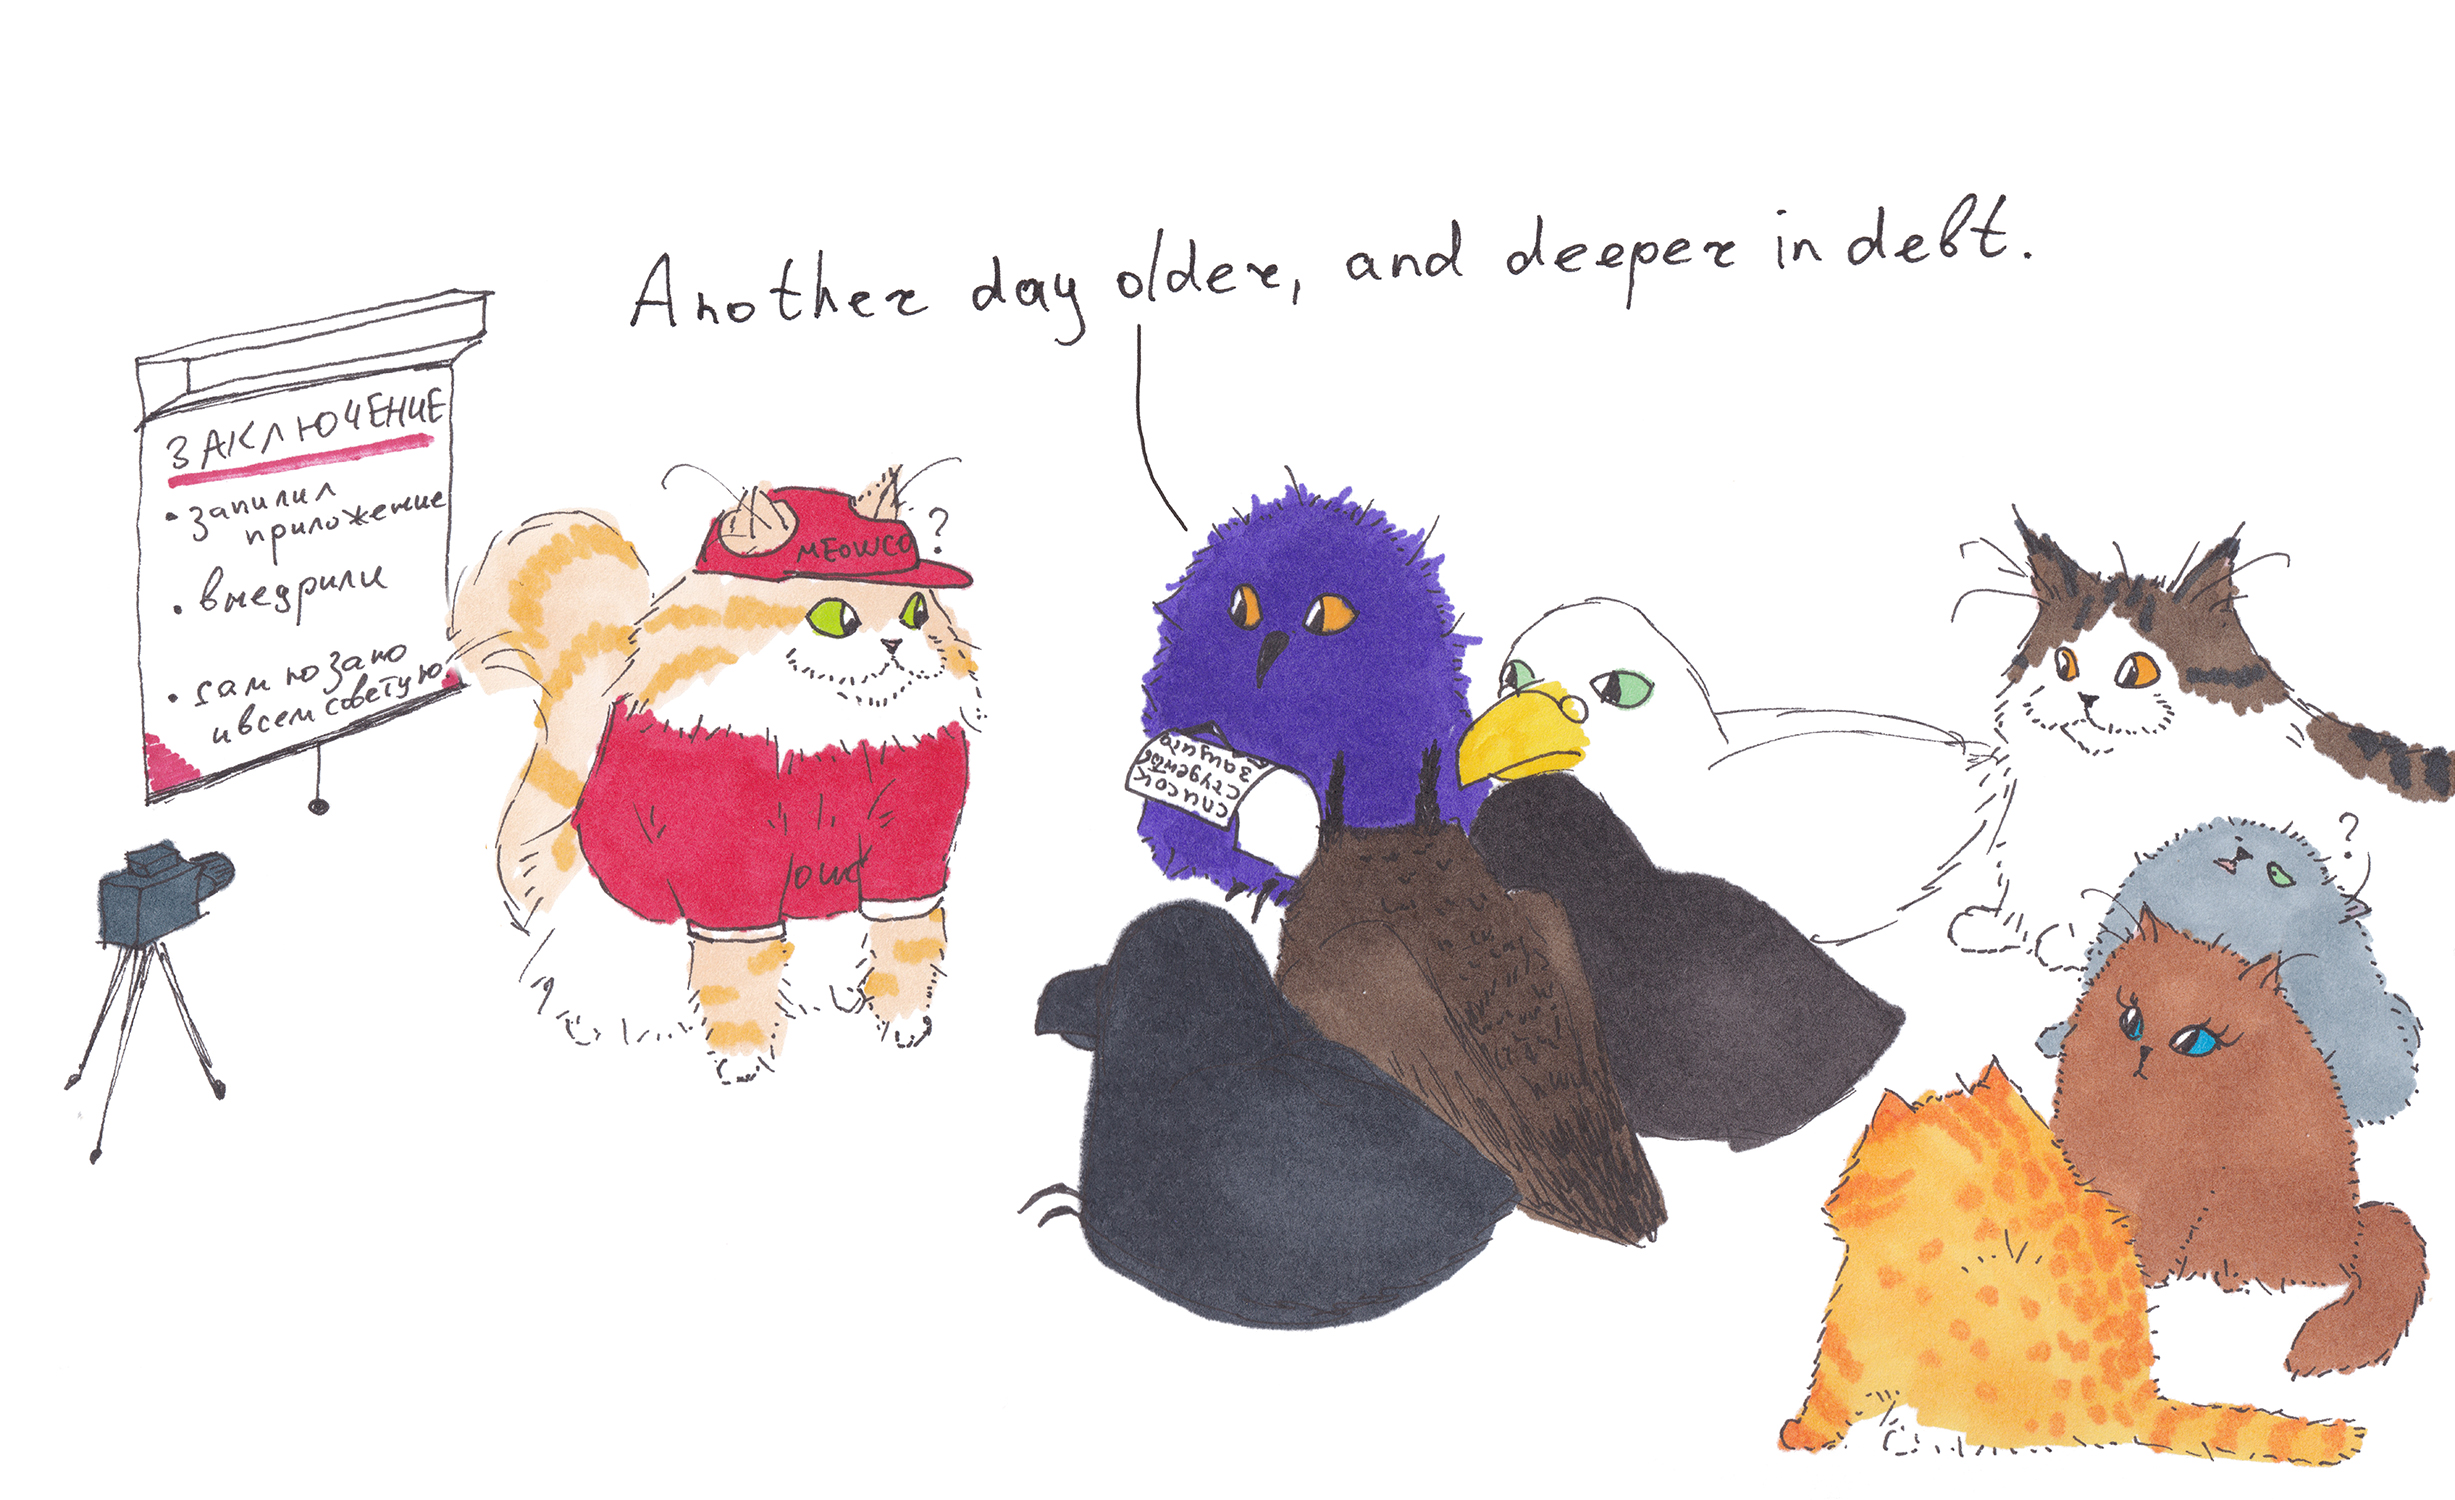 Another day older, and deeper in debt.
ЗАКЛЮЧЕНИЕ
• запилил
приложение
• внедрили
• сам юзаю
и всем советую
MEOWCO
?
список
студентов
защита
?